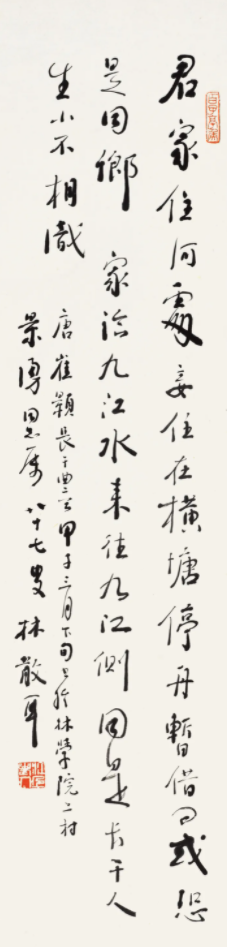 君家住何處妾住在橫塘停舟暫借問或恐
是同鄉 家臨九江水來往九江側同是長干人
生小不相識
唐崔顥長干曲二首甲子三月下旬書於林學院二村
景溥同志屬 八十七叟 林散耳